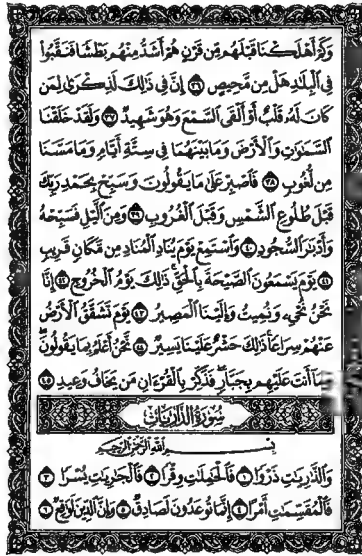 وَكَمْ أَهْلَكْنَا قَبْلَهُم مِّن قَرْنٍ هُمْ أَشَدُّ مِنْهُم بَطْشًا فَنَقَّبُوا۟
فِى ٱلْبِلَـٰدِ هَلْ مِن مَّحِيصٍ ٣٦ إِنَّ فِى ذَٰلِكَ لَذِكْرَىٰ لِمَن
كَانَ لَهُۥ قَلْبٌ أَوْ أَلْقَى ٱلسَّمْعَ وَهُوَ شَهِيدٌ ٣٧ وَلَقَدْ خَلَقْنَا
ٱلسَّمَـٰوَٰتِ وَٱلْأَرْضَ وَمَا بَيْنَهُمَا فِى سِتَّةِ أَيَّامٍ وَمَا مَسَّنَا
مِن لُّغُوبٍ ٣٨ فَٱصْبِرْ عَلَىٰ مَا يَقُولُونَ وَسَبِّحْ بِحَمْدِ رَبِّكَ
قَبْلَ طُلُوعِ ٱلشَّمْسِ وَقَبْلَ ٱلْغُرُوبِ ٣٩ وَمِنَ ٱلَّيْلِ فَسَبِّحْهُ
وَأَدْبَـٰرَ ٱلسُّجُودِ ٤٠ وَٱسْتَمِعْ يَوْمَ يُنَادِ ٱلْمُنَادِ مِن مَّكَانٍ قَرِيبٍ
٤١ يَوْمَ يَسْمَعُونَ ٱلصَّيْحَةَ بِٱلْحَقِّ ذَٰلِكَ يَوْمُ ٱلْخُرُوجِ ٤٢ إِنَّا
نَحْنُ نُحْىِۦ وَنُمِيتُ وَإِلَيْنَا ٱلْمَصِيرُ ٤٣ يَوْمَ تَشَقَّقُ ٱلْأَرْضُ
عَنْهُمْ سِرَاعًا ذَٰلِكَ حَشْرٌ عَلَيْنَا يَسِيرٌ ٤٤ نَّحْنُ أَعْلَمُ بِمَا يَقُولُونَ
وَمَآ أَنتَ عَلَيْهِم بِجَبَّارٍ فَذَكِّرْ بِٱلْقُرْءَانِ مَن يَخَافُ وَعِيدِ ٤٥
سُورَةُ الذَّارِيَاتِ
بِسْمِ ٱللَّهِ ٱلرَّحْمَـٰنِ ٱلرَّحِيمِ
وَٱلذَّٰرِيَـٰتِ ذَرْوًا ١ فَٱلْحَـٰمِلَـٰتِ وِقْرًا ٢ فَٱلْجَـٰرِيَـٰتِ يُسْرًا ٣
فَٱلْمُقَسِّمَـٰتِ أَمْرًا ٤ إِنَّمَا تُوعَدُونَ لَصَادِقٌ ٥ وَإِنَّ ٱلدِّينَ لَوَٰقِعٌ ٦